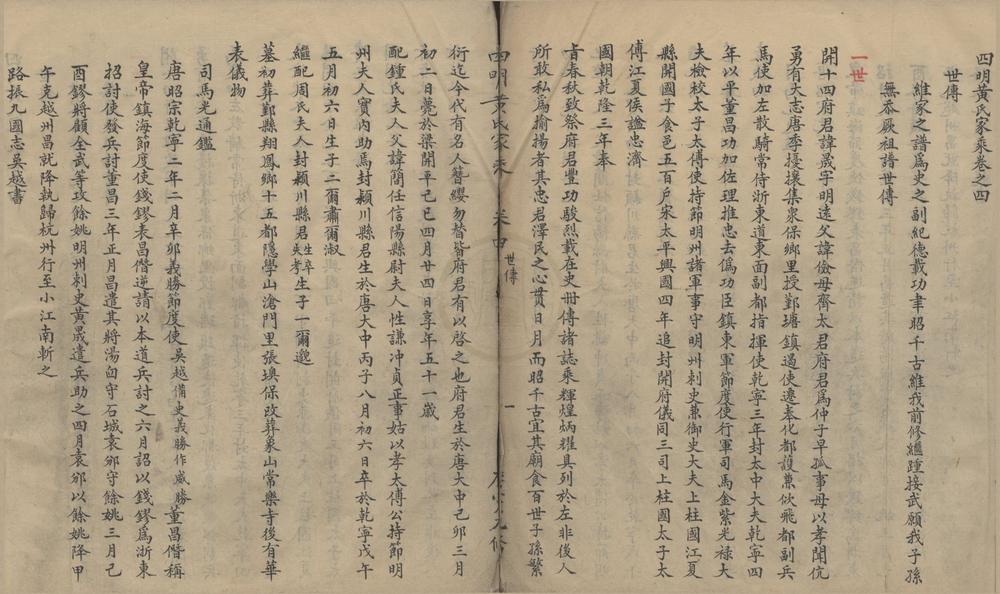 四明黃氏家乘卷之四
世傳
維家之譜爲史之副紀德載功聿昭千古維我前修繼踵接武願我子孫
無忝厥祖譜世傳
一世
開十四府君諱晟字明遠父諱儉母齊太君府君爲仲子早孤事母以孝聞伉
勇有大志唐季擾攘集衆保鄉里授鄞塘鎮遏使遷奉化都護兼佽飛都副兵
馬使加左散騎常侍浙東道東面副都指揮使乾寧三年封太中大夫乾寧四
年以平董昌功加佐理推忠去僞功臣鎮東軍節度使行軍司馬金紫光祿大
夫檢校太子太傅使持節明州諸軍事守明州刺史兼御史大夫上柱國江夏
縣開國子食邑五百戶宋太平興國四年追封開府儀同三司上柱國太子太
傅江夏侯謚忠濟
國朝乾隆三年奉
旨春秋致祭府君豐功駿烈載在史冊傳諸誌乘輝煌炳耀具列於左非後人
所敢私爲揄揚者其忠君澤民之心貫日月而昭千古宜其廟食百世子孫繁
四明黃氏家乘 卷四 世傳 一
衍迄今代有名人簪纓勿替皆府君有以啓之也府君生於唐大中己卯三月
初二日薨於梁開平己巳四月廿四日享年五十一歲
配鍾氏夫人父諱簡任信陽縣尉夫人性謙冲貞正事姑以孝太傅公持節明
州夫人實內助焉封潁川縣君生於唐大中丙子八月初六日卒於乾寧戊午
五月初六日生子二爾肅爾淑
繼配周氏夫人封潁川縣君生卒失考生子一爾邈
墓初葬鄞縣翔鳳鄉十五都隱學山滄門里張墺保改葬象山常樂寺後有華
表儀物
司馬光通鑑
唐昭宗乾寧二年二月辛卯義勝節度使吳越備史義勝作威勝董昌僭稱
皇帝鎮海節度使錢鏐表昌僭逆請以本道兵討之六月詔以錢鏐爲浙東
招討使發兵討董昌三年正月昌遣其將湯臼守石城袁邠守餘姚三月己
酉鏐將顧全武等攻餘姚明州刺史黃晟遣兵助之四月袁邠以餘姚降甲
午克越州昌就降執歸杭州行至小江南斬之
路振九國志吳越書